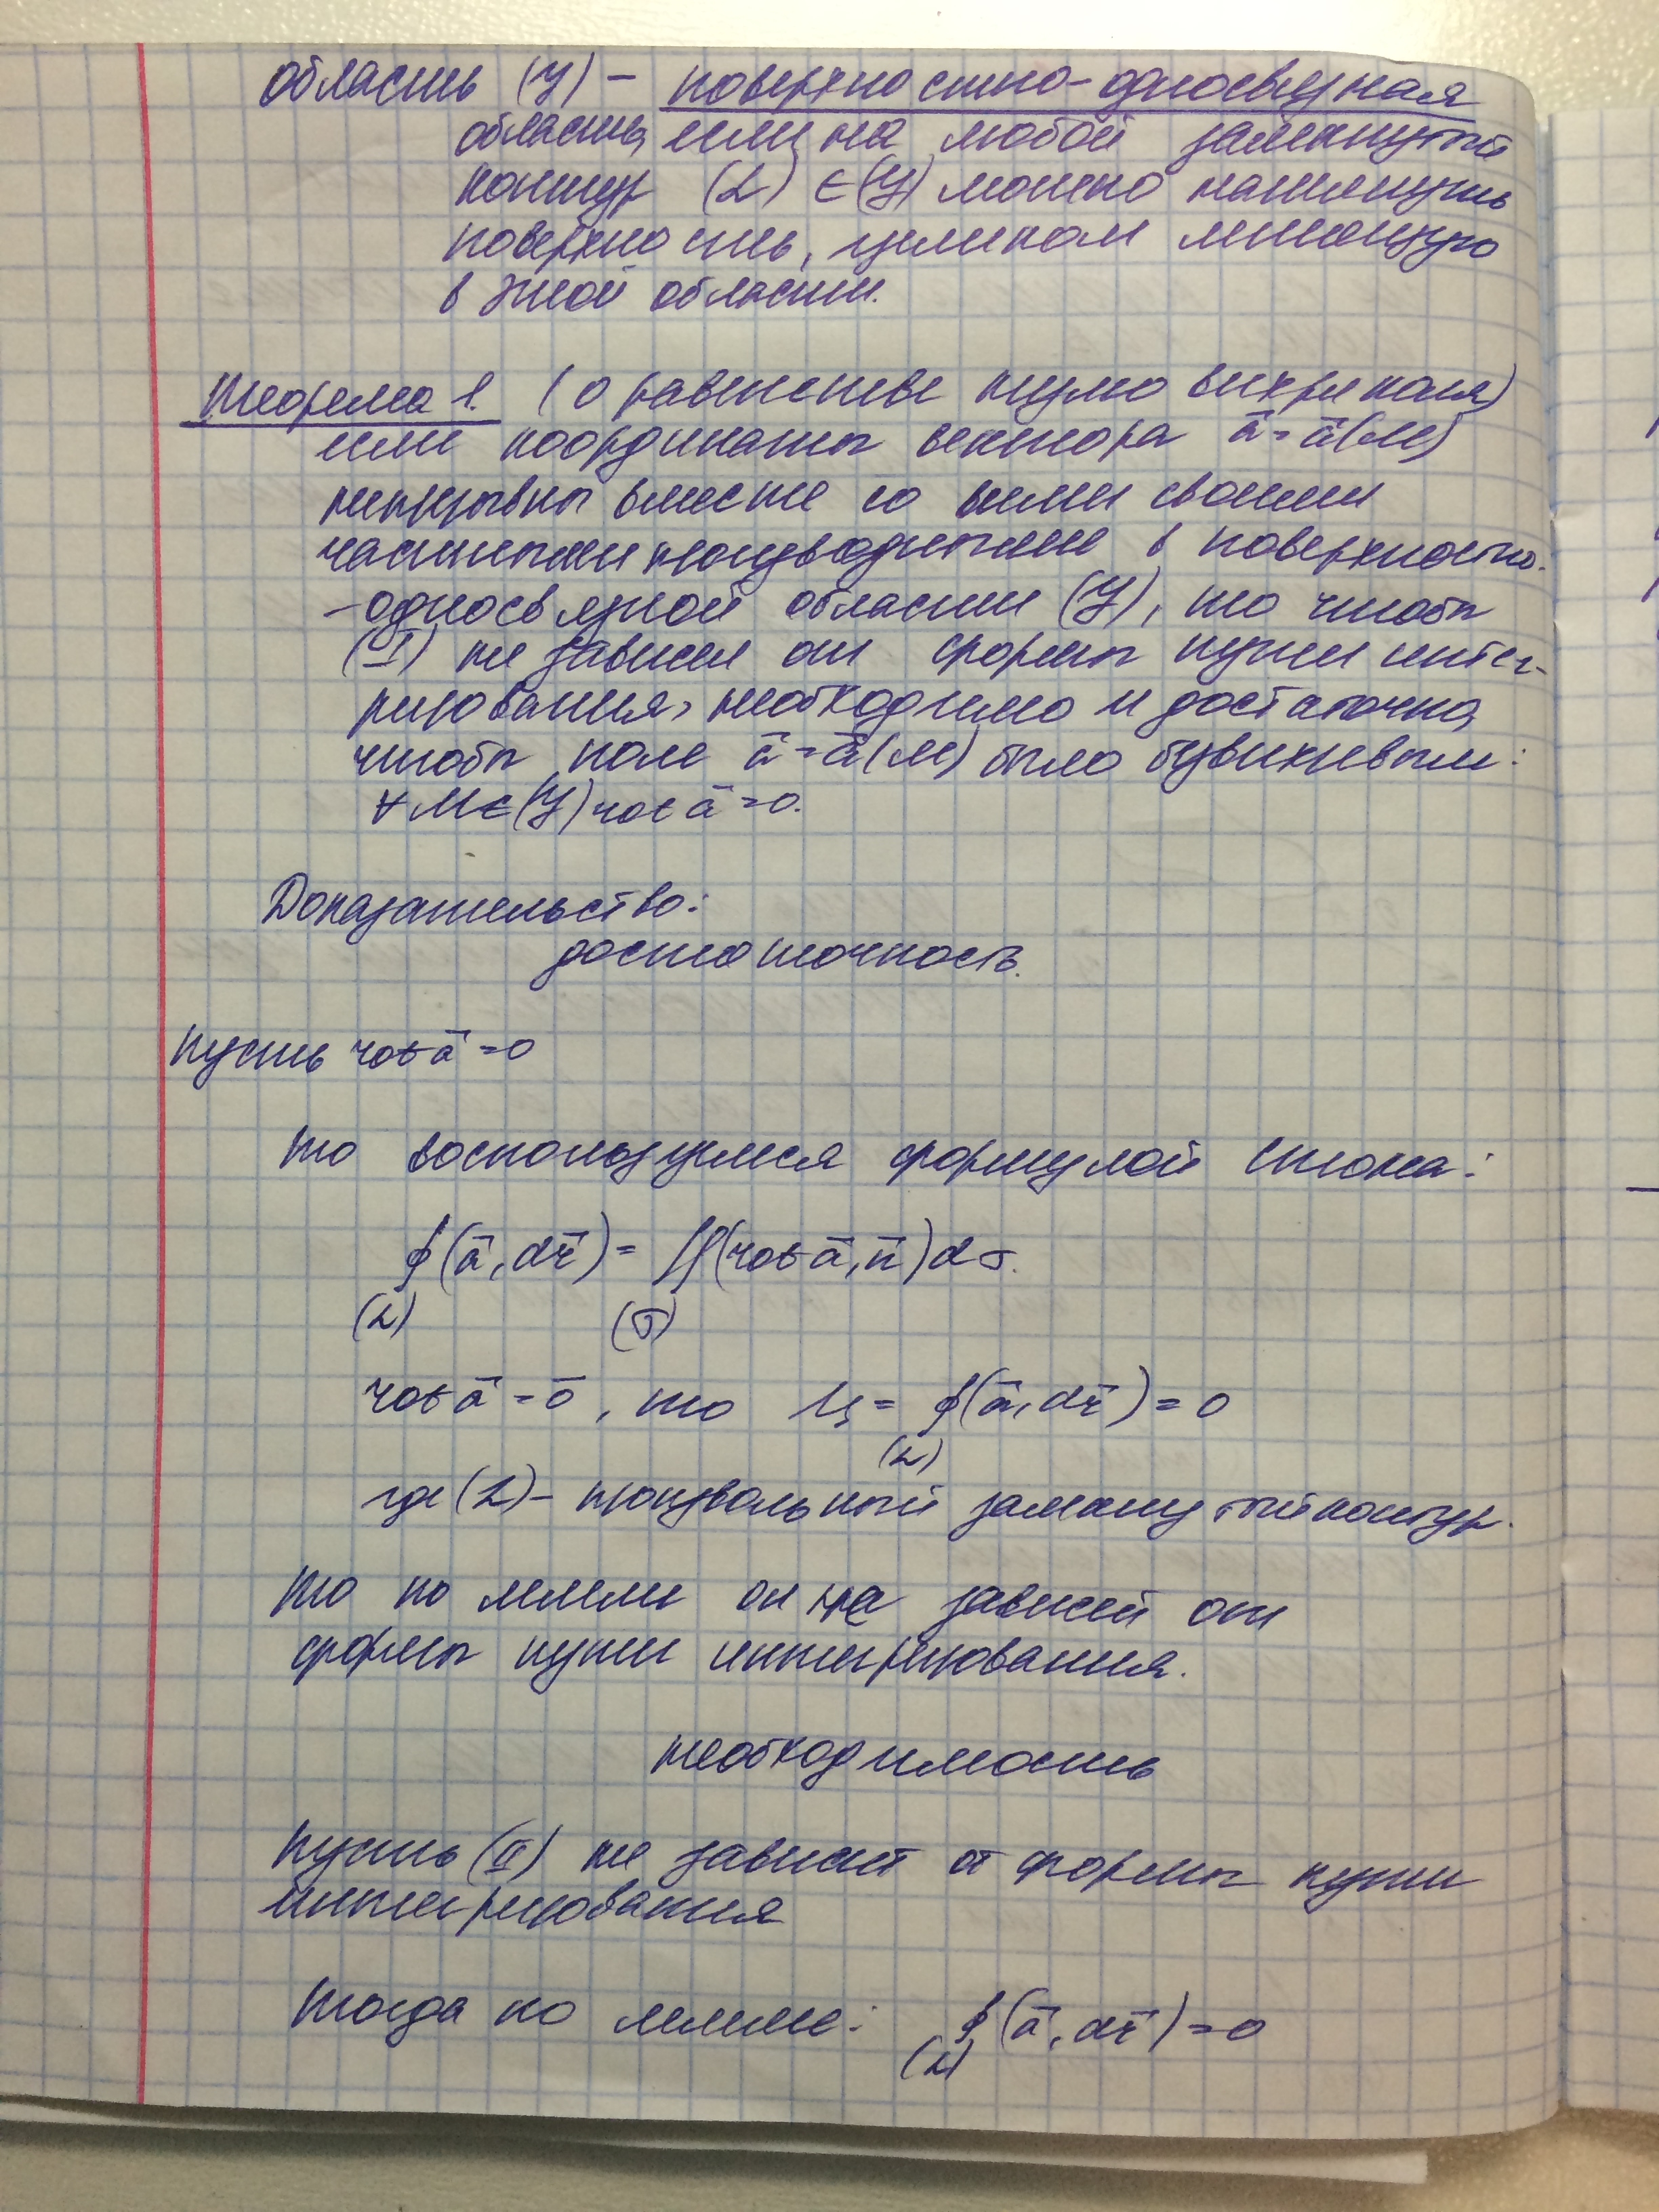 область (У) – поверхностно-односвязная
область, если на любой замкнутый
контур (L) ∈ (У) можно натянуть
поверхность, целиком лежащую
в этой области.
Теорема 1. (о равенстве нулю вихря поля)
если координаты вектора ā = ā(М)
непрерывны вместе со всеми своими
частными производными в поверхностно-
-односвязной области (У), то чтобы
(I) не зависел от формы пути интег-
рирования, необходимо и достаточно,
чтобы поле ā = ā(М) было безвихревым:
∀ М ∈ (У) rot ā = 0.
Доказательство:
достаточность.
пусть rot ā = 0
то воспользуемся формулой Стокса:
∮(ā, dr̄) = ∬(rot ā, n̄) dσ.
(L) (σ)
rot ā = 0̄, то Ц = ∮(ā, dr̄) = 0
(L)
где (L) – произвольный замкнутый контур.
то по лемме он не зависит от
формы пути интегрирования.
необходимость
пусть (II) не зависит от формы пути
интегрирования
тогда по лемме: ∮(ā, dr̄) = 0
(L)